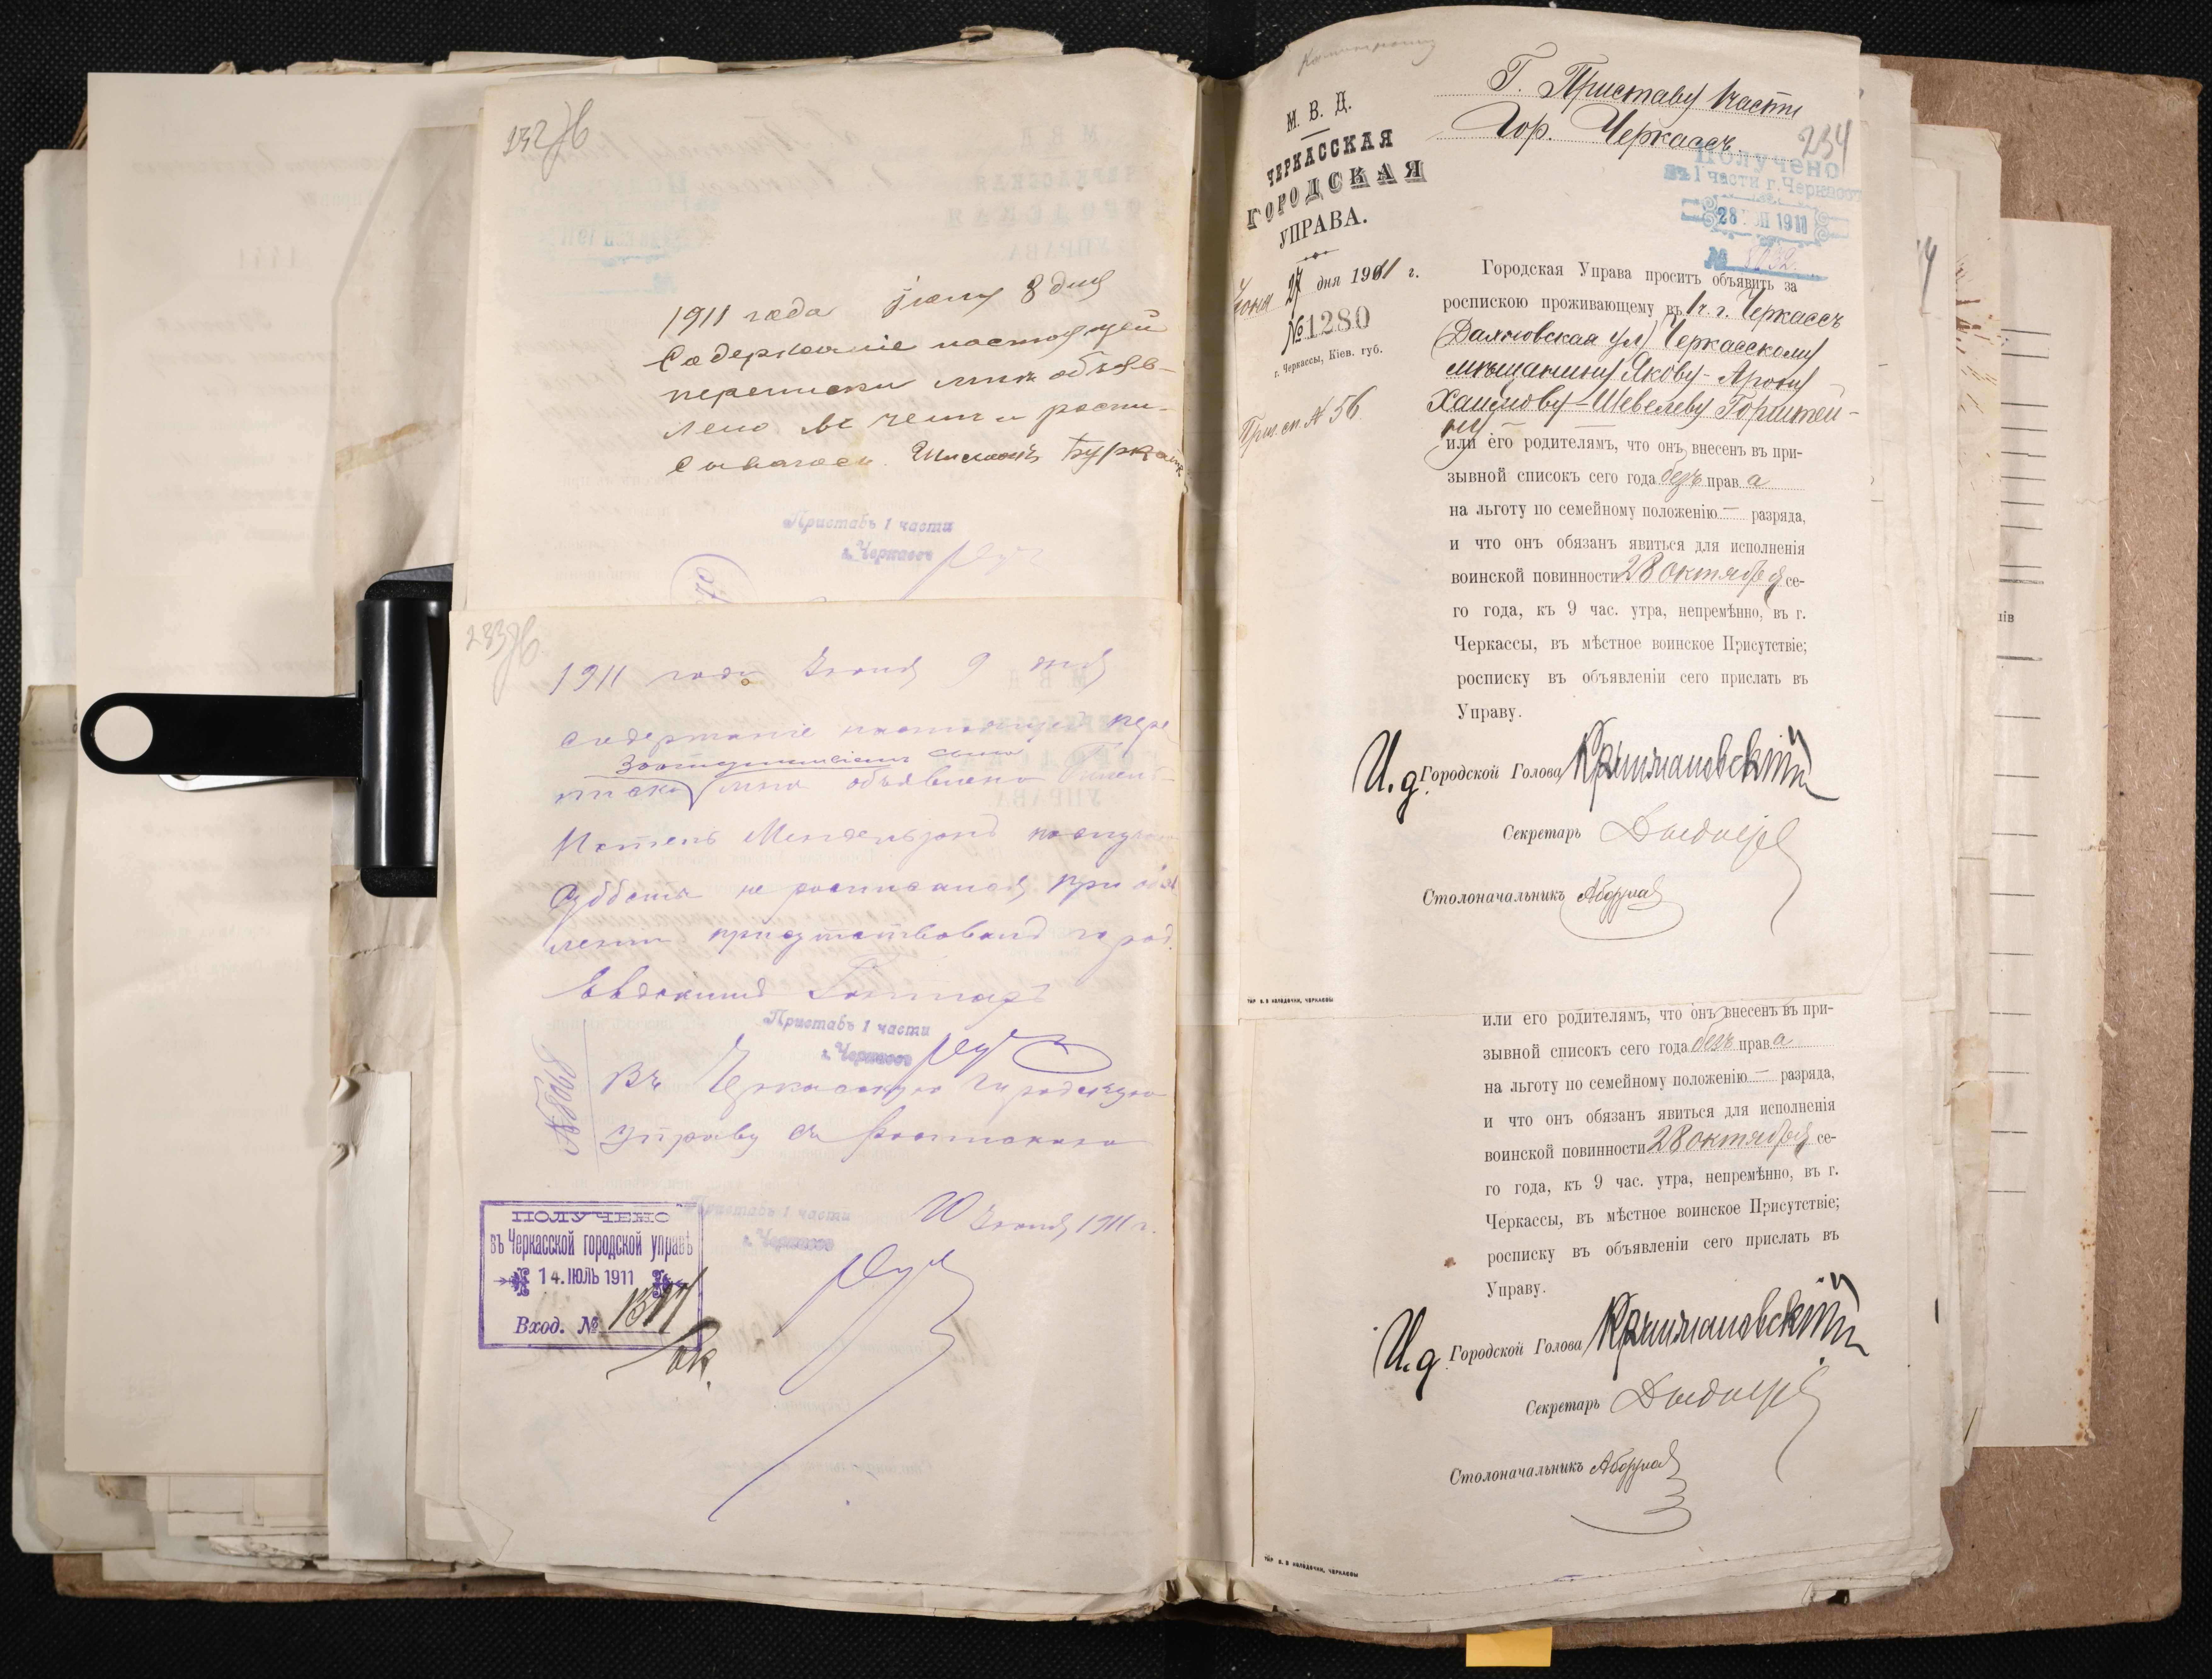 232 об
1911 года июля 8 дня
Содержаніе настоящей
переписки мнѣ объяв-
лено въ чемъ и распи-
сываюсь
Приставъ 1 части
г. Черкассъ
233 об
1911 года Іюня 9 дня
Содержаніе настоящей пере
пискѣ мнѣ объявлено
Мендельзонъ
Субботы не росписался при объя
лении присутствовалъ город.
Евдокимъ Гончаръ
Приставъ 1 части
г. Черкассъ
№ 8068
Въ Черкасскую Городскую
Управу съ роспискою
10 Іюня 1911 г.
Приставъ 1 части
г. Черкассъ
ПОЛУЧЕНО
въ Черкасской городской управѣ
14. ІЮЛЬ 1911
Вход. №
Г. Приставу 1 части
Гор. Черкассъ
234
Получено
въ 1 части г. Черкассъ
28 1911
№
М. В. Д.
ЧЕРКАССКАЯ
ГОРОДСКАЯ
УПРАВА.
Іюня 27 дня 1911 г.
№ 1280
г. Черкассы, Кіев. губ.
Приз. сп. № 56
Городская Управа проситъ объявить за
роспискою проживающему въ 1 ч. г. Черкассъ
ул) Черкасскому
мѣщанину Якову-Арону
Хаимову-Шевелеву Горштей-
ну
или его родителямъ, что онъ внесенъ въ при-
зывной списокъ сего года безъ права
на льготу по семейному положенію — разряда,
и что онъ обязанъ явиться для исполненія
воинской повинности 28 октября се-
го года, къ 9 час. утра, непремѣнно, въ г.
Черкассы, въ мѣстное воинское Присутствіе;
росписку въ объявленіи сего прислать въ
Управу.
И. д. Городской Голова
Секретарь
Столоначальникъ
или его родителямъ, что онъ внесенъ въ при-
зывной списокъ сего года безъ права
на льготу по семейному положенію — разряда,
и что онъ обязанъ явиться для исполненія
воинской повинности 28 октября се-
го года, къ 9 час. утра, непремѣнно, въ г.
Черкассы, въ мѣстное воинское Присутствіе;
росписку въ объявленіи сего прислать въ
Управу.
И. д. Городской Голова
Секретарь
Столоначальникъ